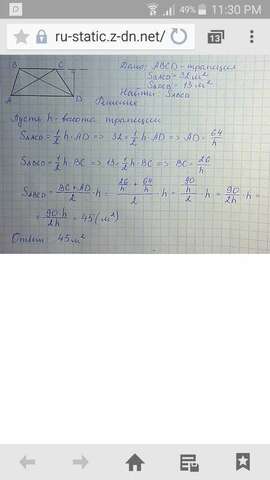 49% 11:30 PM
ru-static.z-dn.net/ 13
B C
A D
Дано: ABCD - трапеция
S ACD = 32 м²
Найти: S ABCD
Решение
Пусть h - высота трапеции
S ACD = 1/2 h·AD => 32 = 1/2 h·AD => AD = 64/h
= 1/2 h·BC => 13 = 1/2 h·BC => BC = 26/h
S ABCD = (BC + AD)/2 · h = (26/h + 64/h)/2 · h = (90/h)/2 · h = 90/2h · h =
= 90·h/2h = 45 (м²)
Ответ: 45 м²